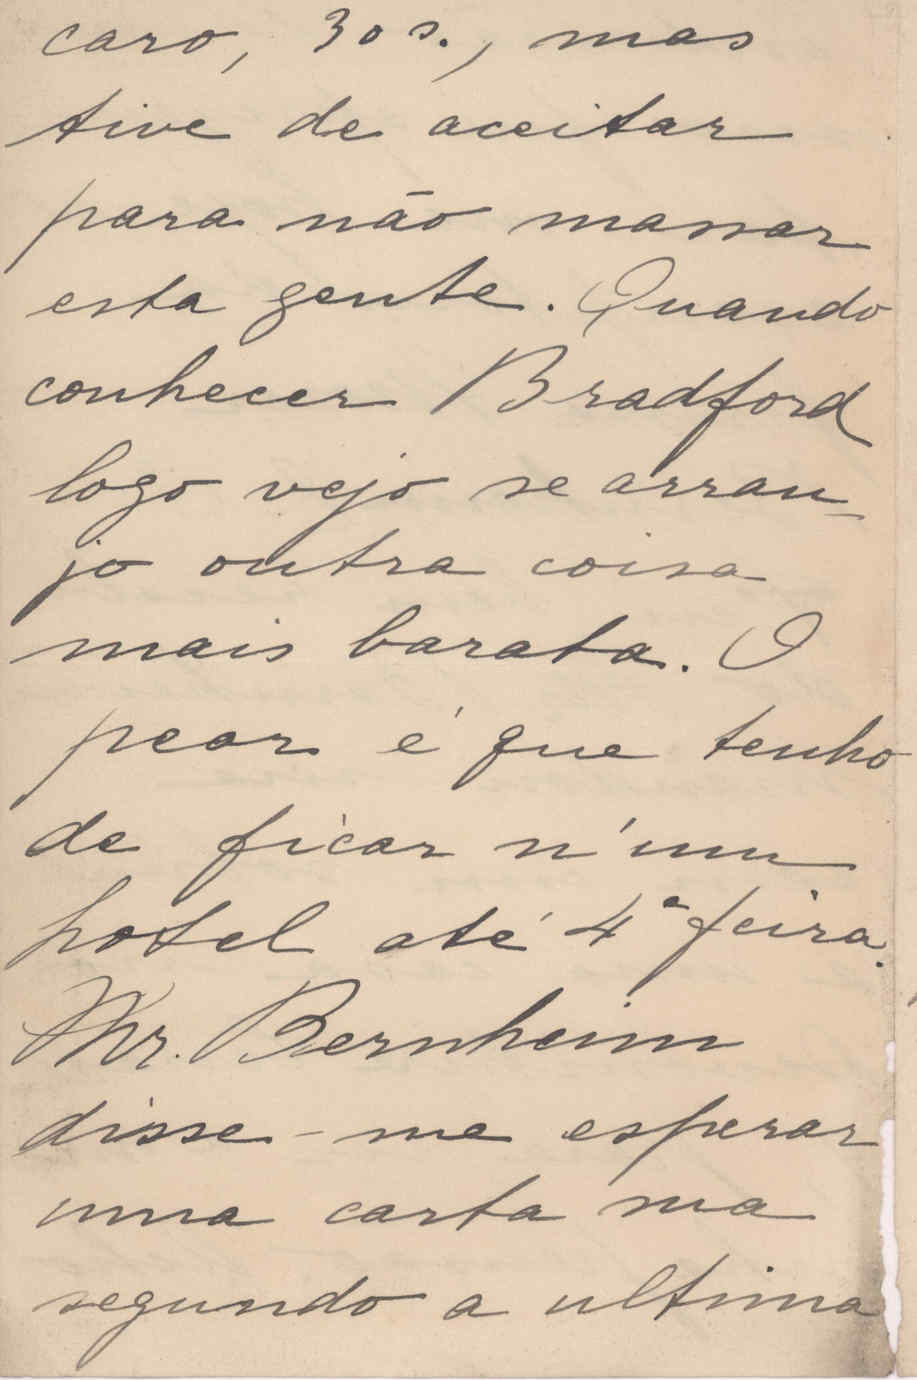 caro, 30 s., mas
tive de aceitar
para não massar
esta gente. Quando
conhecer Bradford
logo vejo se arran-
jo outra coisa
mais barata. O
peor é que tenho
de ficar n'um
hotel até 4ª feira.
Mr. Bernheim
disse-me esperar
uma carta sua
segundo a ultima